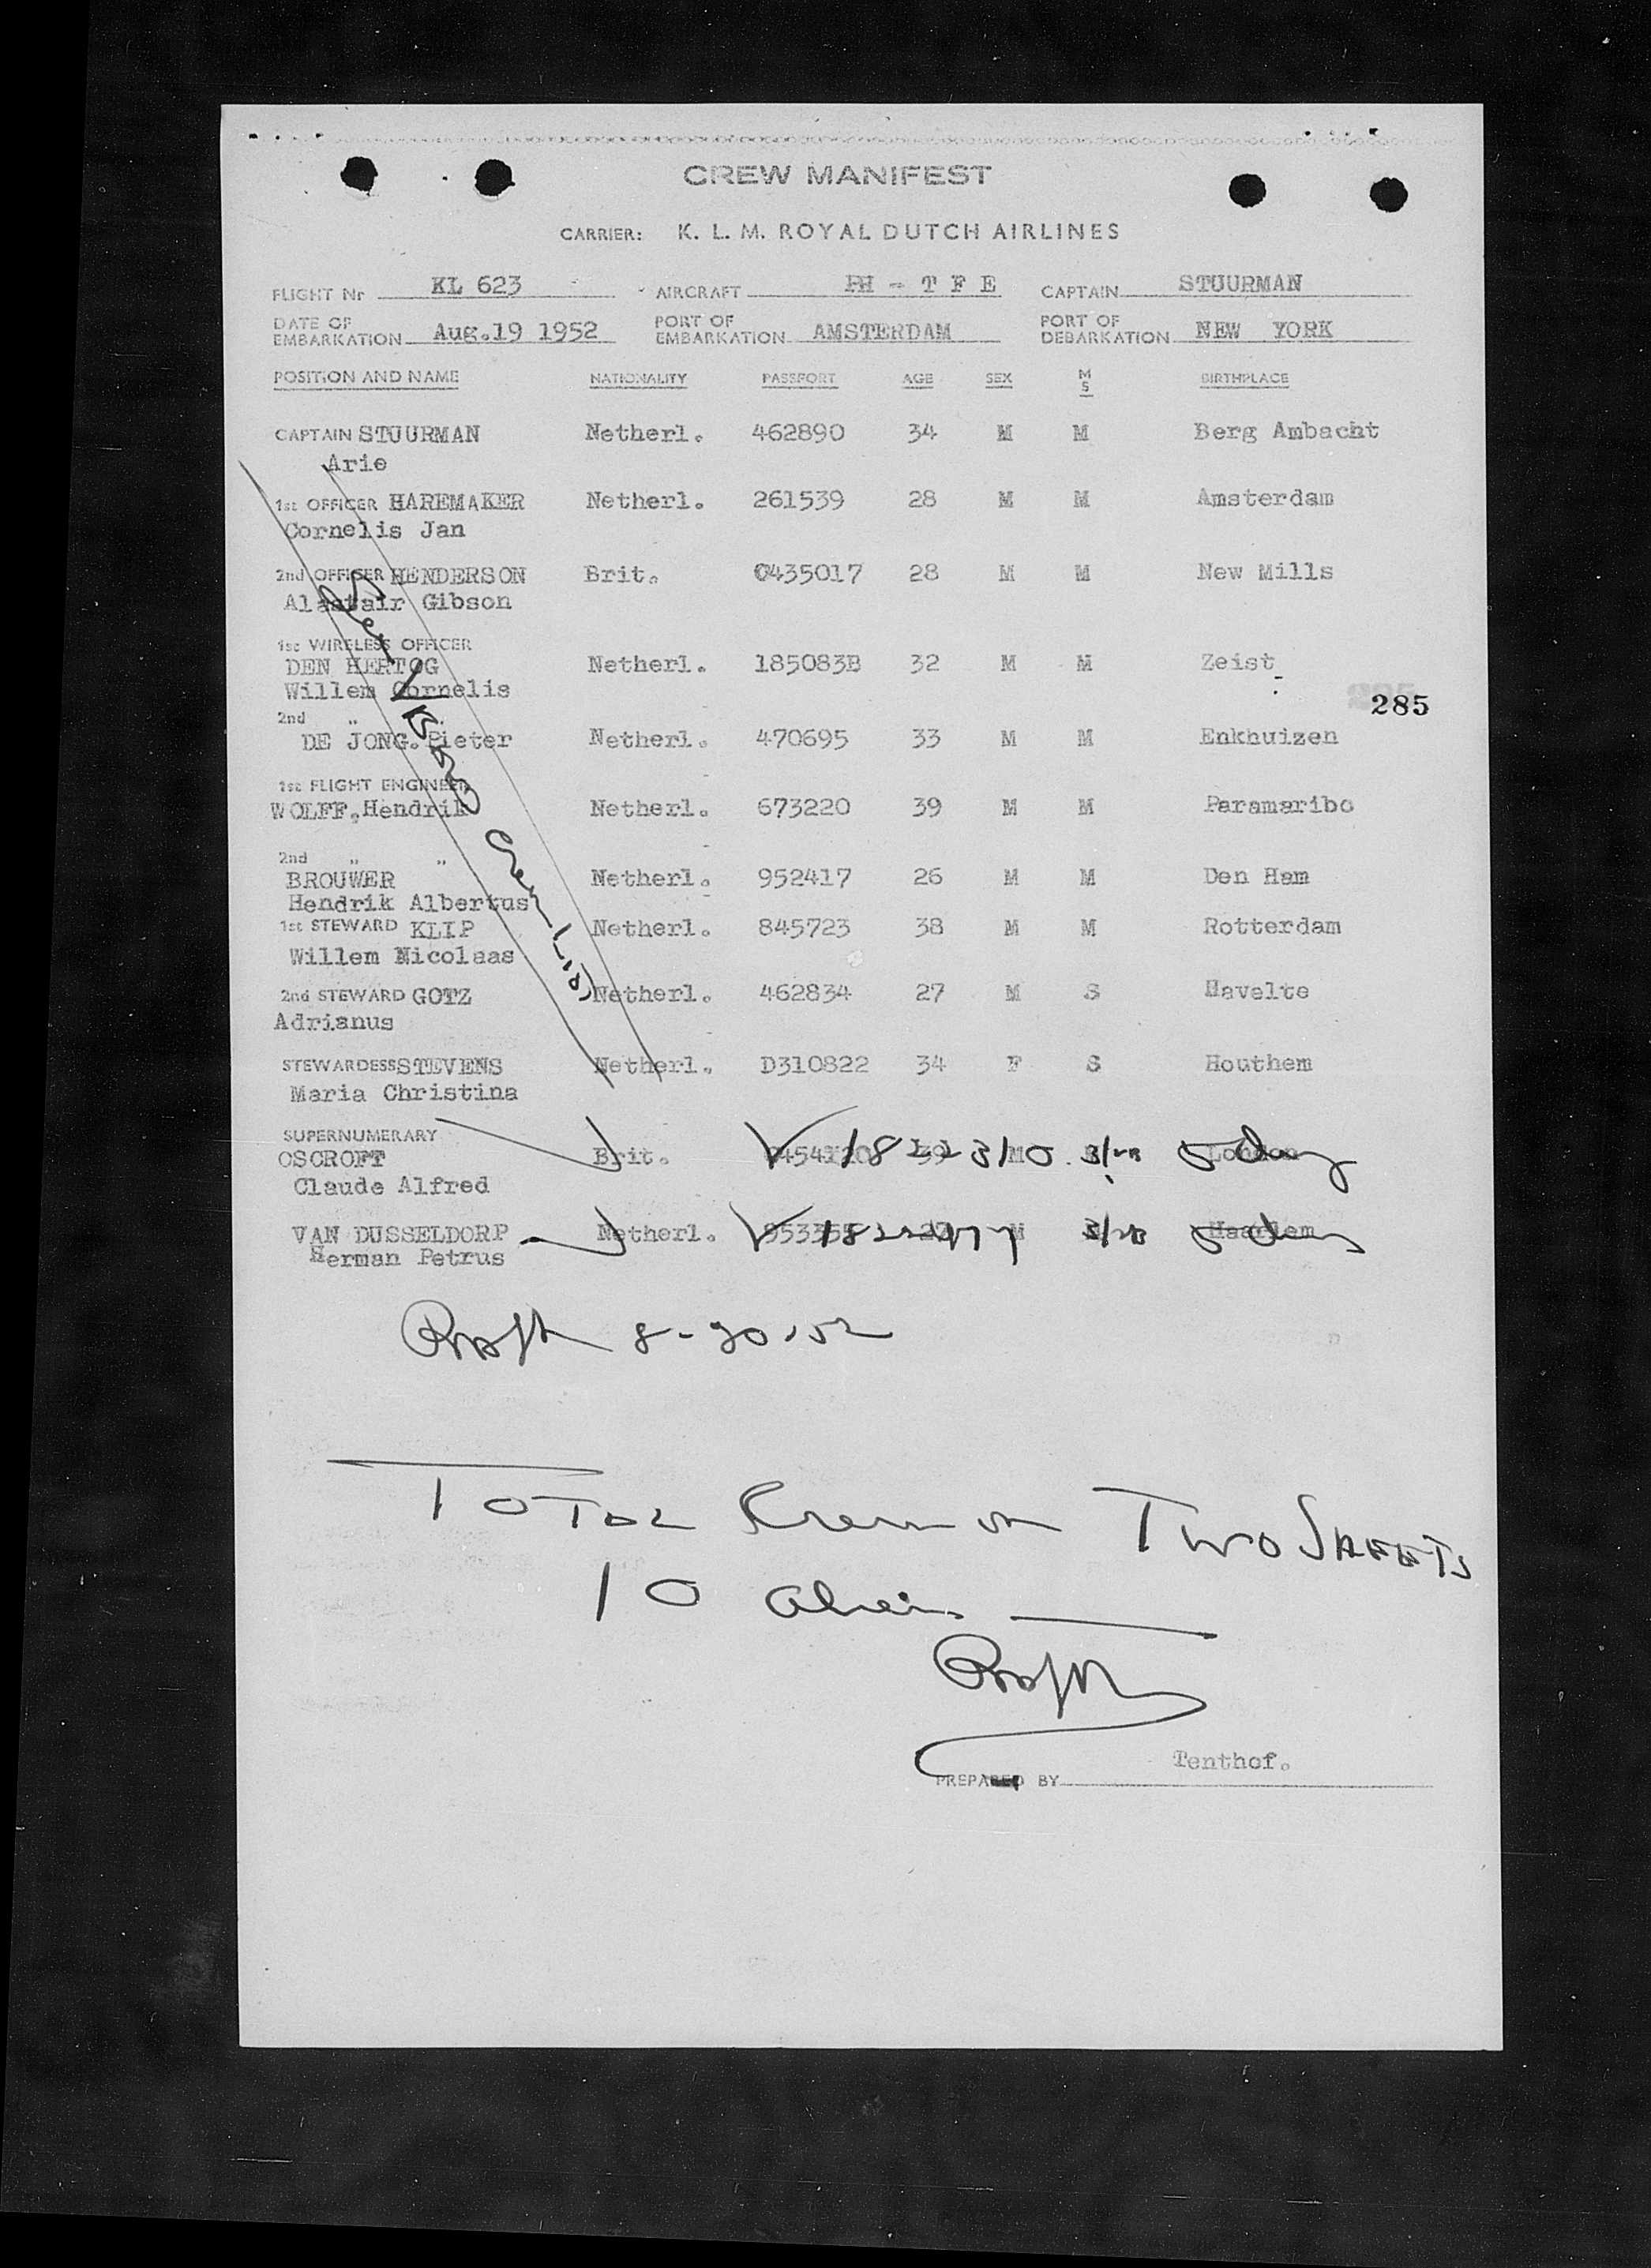 CREW MANIFEST
CARRIER: K. L. M. ROYAL DUTCH AIRLINES
FLIGHT Nr KL 623 AIRCRAFT PH - T F E CAPTAIN STUURMAN
DATE OF EMBARKATION Aug.19 1952 PORT OF EMBARKATION AMSTERDAM PORT OF DEBARKATION NEW YORK
POSITION AND NAME NATIONALITY PASSPORT AGE SEX M S BIRTHPLACE
CAPTAIN STUURMAN Netherl. 462890 34 M M Berg Ambacht
Arie
1st OFFICER HAREMAKER Netherl. 261539 28 M M Amsterdam
Cornelis Jan
2nd OFFICER HENDERSON Brit. C435017 28 M M New Mills
Alastair Gibson
1st WIRELESS OFFICER
DEN HERTOG Netherl. 185083B 32 M M Zeist
Willem Cornelis
285
2nd " "
DE JONG. Pieter Netherl. 470695 33 M M Enkhuizen
1st FLIGHT ENGINEER
WOLFF. Hendrik Netherl. 673220 39 M M Paramaribo
2nd " "
BROUWER Netherl. 952417 26 M M Den Ham
Hendrik Albertus
1st STEWARD KLIP Netherl. 845723 38 M M Rotterdam
Willem Nicolaas
2nd STEWARD GOTZ Netherl. 462834 27 M S Havelte
Adrianus
STEWARDESS STEVENS Netherl. D310822 34 F S Houthem
Maria Christina
SUPERNUMERARY
OSCROFT Brit. M London
Claude Alfred
VAN DUSSELDORP Netherl. M Haarlem
Herman Petrus
8-20-52
TOTAL Crew on TWO SHEETS
10 aliens
Tenthof.
PREPARED BY